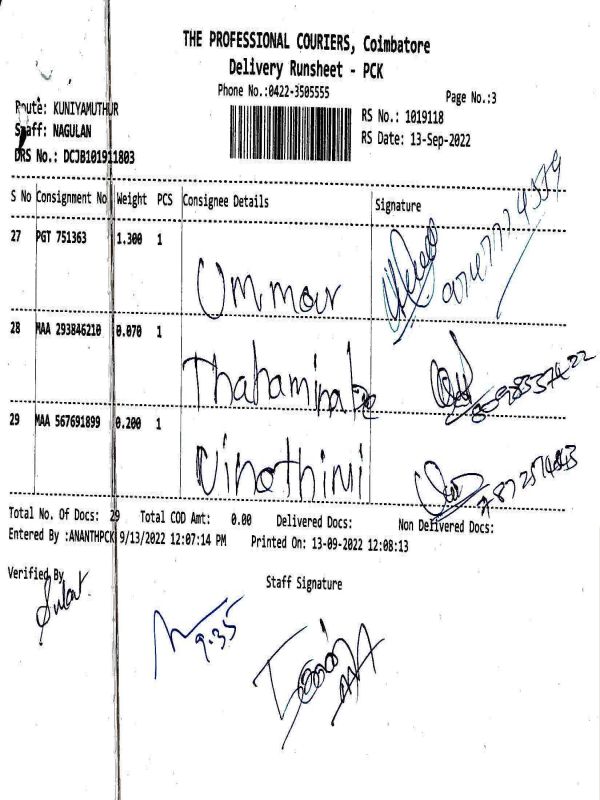 THE PROFESSIONAL COURIERS, Coimbatore
Delivery Runsheet - PCK
Phone No.:0422-3505555
Page No.:3
Route: KUNIYAMUTHUR
RS No.: 1019118
Staff: NAGULAN
RS Date: 13-Sep-2022
DRS No.: DCJB101911803
S No Consignment No Weight PCS Consignee Details Signature
27 PGT 751363 1.300 1
Ummar
28 MAA 293846210 0.070 1
29 MAA 567691899 0.200 1
Vinothini
Total No. Of Docs: 29 Total COD Amt: 0.00 Delivered Docs: Non Delivered Docs:
Entered By :ANANTHPCK 9/13/2022 12:07:14 PM Printed On: 13-09-2022 12:08:13
Verified By
Staff Signature
9.35